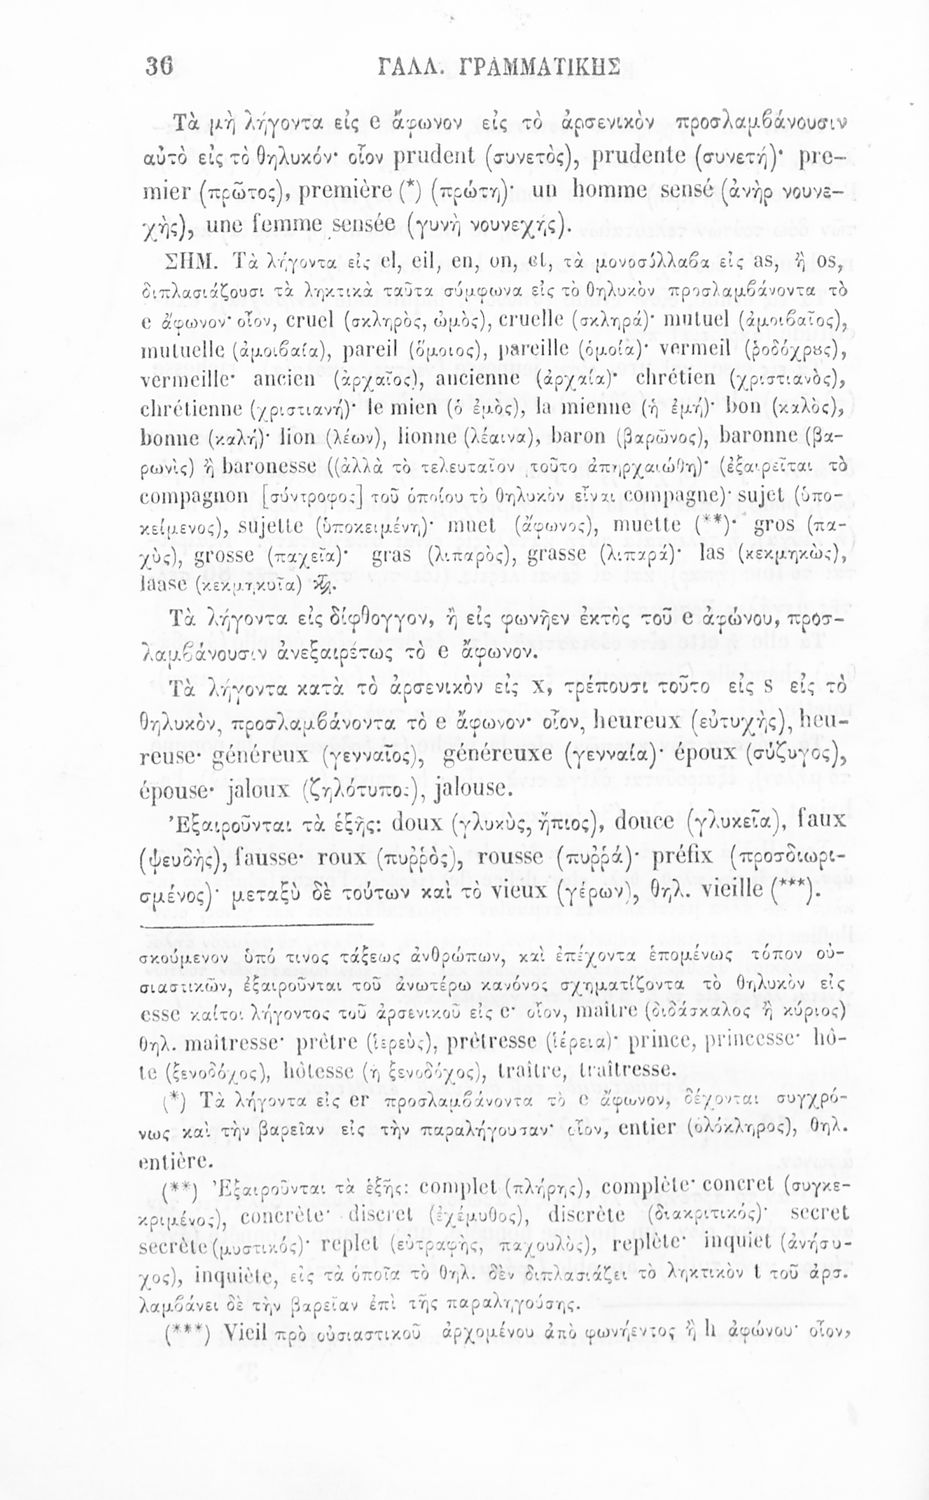 36 ΓΑΛΛ. ΓΡΑΜΜΑΤΙΚΗΣ
Τὰ μὴ λήγοντα εἰς e ἄφωνον εἰς τὸ ἀρσενικὸν προσλαμβάνουσιν
αὐτὸ εἰς τὸ θηλυκόν· οἷον prudent (συνετὸς), prudente (συνετή)· pre-
mier (πρῶτος), première (*) (πρώτη)· un homme sensé (ἀνὴρ νουνε-
χὴς), une femme sensée (γυνὴ νουνεχής).
ΣΗΜ. Τὰ λήγοντα εἰς el, eil, en, on, et, τὰ μονοσύλλαβα εἰς as, ἢ os,
διπλασιάζουσι τὰ ληκτικὰ ταῦτα σύμφωνα εἰς τὸ θηλυκὸν προσλαμβάνοντα τὸ
e ἄφωνον· οἷον, cruel (σκληρὸς, ὠμὸς), cruelle (σκληρά)· mutuel (ἀμοιβαῖος),
mutuelle (ἀμοιβαία), pareil (ὅμοιος), pareille (ὁμοία)· vermeil (ῥοδόχρȣς),
vermeille· ancien (ἀρχαῖος), ancienne (ἀρχαία)· chrétien (χριστιανὸς),
chrétienne (χριστιανή)· le mien (ὁ ἐμὸς), la mienne (ἡ ἐμή)· bon (καλὸς),
bonne (καλή)· lion (λέων), lionne (λέαινα), baron (βαρῶνος), baronne (βα-
ρωνὶς) ἢ baronesse ((ἀλλὰ τὸ τελευταῖον τοῦτο ἀπηρχαιώθη)· (ἐξαιρεῖται τὸ
compagnon [σύντροφος] τοῦ ὁποίου τὸ θηλυκὸν εἶναι compagne)· sujet (ὑπο-
κείμενος), sujette (ὑποκειμένη)· muet (ἄφωνος), muette (**)· gros (πα-
χὺς), grosse (παχεῖα)· gras (λιπαρὸς), grasse (λιπαρά)· las (κεκμηκὼς),
laase (κεκμηκυῖα)
Τὰ λήγοντα εἰς δίφθογγον, ἢ εἰς φωνῆεν ἐκτὸς τοῦ e ἀφώνου, προσ-
λαμβάνουσιν ἀνεξαιρέτως τὸ e ἄφωνον.
Τὰ λήγοντα κατὰ τὸ ἀρσενικὸν εἰς x, τρέπουσι τοῦτο εἰς s εἰς τὸ
θηλυκὸν, προσλαμβάνοντα τὸ e ἄφωνον· οἷον, heureux (εὐτυχὴς), heu-
reuse· généreux (γενναῖος), généreuxe (γενναία)· époux (σύζυγος),
épouse· jaloux (ζηλότυπος), jalouse.
Ἐξαιροῦνται τὰ ἑξῆς: doux (γλυκὺς, ἤπιος), douce (γλυκεῖα), faux
(ψευδὴς), fausse· roux (πυῤῥὸς), rousse (πυῤῥά)· préfix (προσδιωρι-
σμένος)· μεταξὺ δὲ τούτων καὶ τὸ vieux (γέρων), θηλ. vieille (***).
σκούμενον ὑπό τινος τάξεως ἀνθρώπων, καὶ ἐπέχοντα ἑπομένως τόπον οὐ-
σιαστικῶν, ἐξαιροῦνται τοῦ ἀνωτέρω κανόνος σχηματίζοντα τὸ θηλυκὸν εἰς
esse καίτοι λήγοντος τοῦ ἀρσενικοῦ εἰς e· οἷον, maître (διδάσκαλος ἢ κύριος)
θηλ. maîtresse· prêtre (ἱερεὺς), prêtresse (ἱέρεια)· prince, princesse· hô-
te (ξενοδόχος), hôtesse (ἡ ξενοδόχος), traître, traîtresse.
(*) Τὰ λήγοντα εἰς er προσλαμβάνοντα τὸ e ἄφωνον, δέχονται συγχρό-
νως καὶ τὴν βαρεῖαν εἰς τὴν παραλήγουσαν· οἷον, entier (ὁλόκληρος), θηλ.
entière.
(**) Ἐξαιροῦνται τὰ ἑξῆς: complet (πλήρης), complète· concret (συγκε-
κριμένος), concrète· discret (ἐχέμυθος), discrète (διακριτικός)· secret
secrète (μυστικός)· replet (εὐτραφὴς, παχουλὸς), replète· inquiet (ἀνήσυ-
χος), inquiète, εἰς τὰ ὁποῖα τὸ θηλ. δὲν διπλασιάζει τὸ ληκτικὸν t τοῦ ἀρσ.
λαμβάνει δὲ τὴν βαρεῖαν ἐπὶ τῆς παραληγούσης.
(***) Vieil πρὸ οὐσιαστικοῦ ἀρχομένου ἀπὸ φωνήεντος ἢ h ἀφώνου· οἷον,